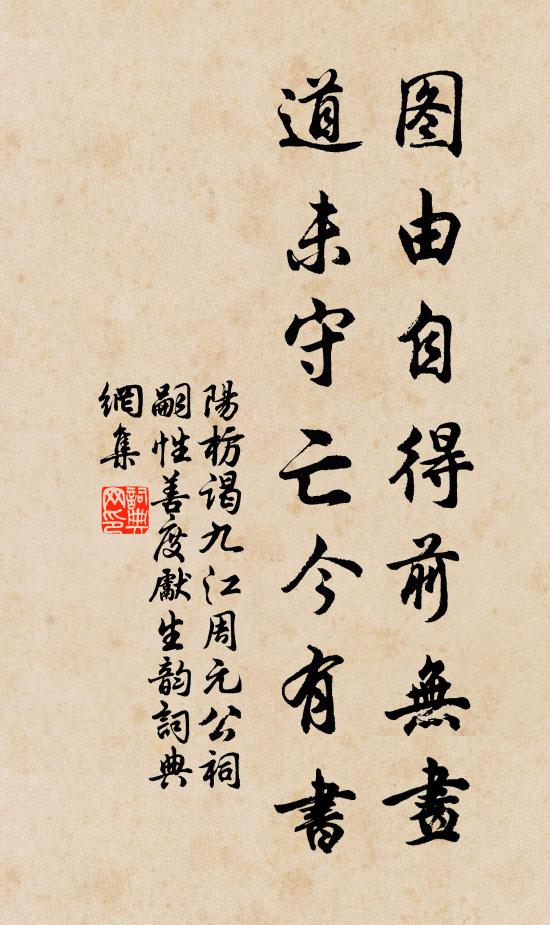 图由自得前無畫
道未守亡今有書
陽枋谒九江周元公祠
嗣性善度獻生韵詞典
網集
詞典
网印